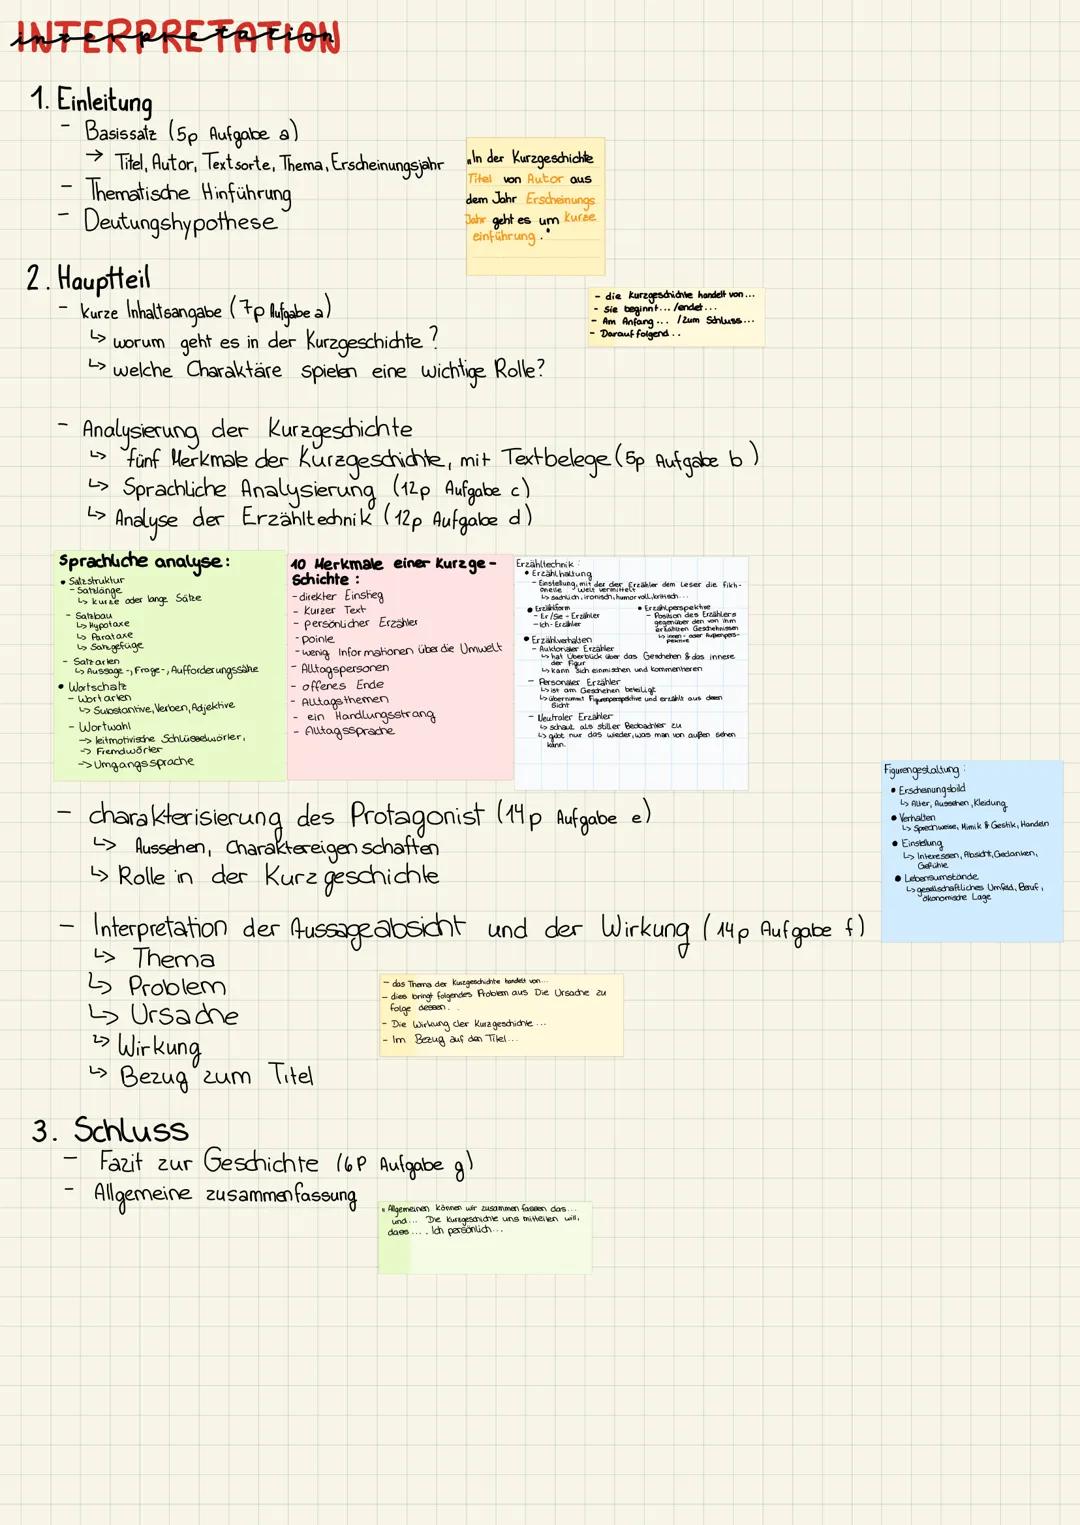 INTERPRETATION
interpretation
1. Einleitung
- Basissatz (5p Aufgabe a)
→ Titel, Autor, Textsorte, Thema, Erscheinungsjahr
- Thematische Hinführung
- Deutungshypothese
"In der Kurzgeschichte
Titel von Autor aus
dem Jahr Erscheinungs
Jahr geht es um kurze
einführung."
2. Hauptteil
- kurze Inhaltsangabe (7p Aufgabe a)
↳ worum geht es in der Kurzgeschichte?
↳ welche Charaktäre spielen eine wichtige Rolle?
- die Kurzgeschichte handelt von...
- Sie beginnt... /endet...
- Am Anfang... /zum Schluss...
- Darauf folgend...
- Analysierung der Kurzgeschichte
↳ fünf Merkmale der Kurzgeschichte, mit Textbelege (5p Aufgabe b)
↳ Sprachliche Analysierung (12p Aufgabe c)
↳ Analyse der Erzähltechnik (12p Aufgabe d)
Sprachliche analyse:
• Satzstruktur
- Satzlänge
↳ kurze oder lange Sätze
- Satzbau
↳ Hypotaxe
↳ Parataxe
↳ Satzgefüge
- Satzarten
↳ Aussage-, Frage-, Aufforderungssähe
• Wortschatz
- Wortarten
↳ Substantive, Verben, Adjektive
- Wortwahl
→ leitmotivische Schlüsselwörter,
→ Fremdwörter
→ Umgangssprache
10 Merkmale einer Kurzge-
schichte:
- direkter Einstieg
- Kurzer Text
- persönlicher Erzähler
- Pointe
- wenig Informationen über die Umwelt
- Alltagspersonen
- offenes Ende
- Alltagsthemen
- ein Handlungsstrang
- Alltagssprache
Erzähltechnik:
• Erzählhaltung
- Einstellung, mit der der Erzähler dem Leser die fikti-
onelle Welt vermittelt
↳ sachlich, ironisch, humorvoll, kritisch...
• Erzählform
- Er/Sie-Erzähler
- Ich-Erzähler
• Erzählperspektive
- Position des Erzählers
gegenüber den von ihm
erzählten Geschehnissen
↳ innen- oder Außenpers-
pektive
• Erzählverhalten
- Auktorialer Erzähler
↳ hat Überblick über das Geschehen & das innere
der Figur
↳ kann sich einmischen und kommentieren
- Personaler Erzähler
↳ ist am Geschehen beteiligt
↳ übernimmt Figurenperspektive und erzählt aus deren
Sicht
- Neutraler Erzähler
↳ schaut als stiller Beobachter zu
↳ gibt nur das wieder, was man von außen sehen
kann.
- charakterisierung des Protagonist (14p Aufgabe e)
↳ Aussehen, Charaktereigenschaften
↳ Rolle in der Kurzgeschichte
Figurengestaltung:
• Erscheinungsbild
↳ Alter, Aussehen, Kleidung
• Verhalten
↳ Sprechweise, Mimik & Gestik, Handeln
• Einstellung
↳ Interessen, Absicht, Gedanken,
Gefühle
• Lebensumstände
↳ gesellschaftliches Umfeld, Beruf,
ökonomische Lage
- Interpretation der Aussageabsicht und der Wirkung (14p Aufgabe f)
↳ Thema
↳ Problem
↳ Ursache
↳ Wirkung
↳ Bezug zum Titel
- das Thema der Kurzgeschichte handelt von...
- dies bringt folgendes Problem aus Die Ursache zu
folge dessen...
- Die Wirkung der Kurzgeschichte...
- Im Bezug auf den Titel...
3. Schluss
- Fazit zur Geschichte (6P Aufgabe g)
- Allgemeine zusammenfassung
"Allgemeinen können wir zusammen fassen das...
und... Die kurzgeschichte uns mitteilen will,
dass.... Ich persönlich...